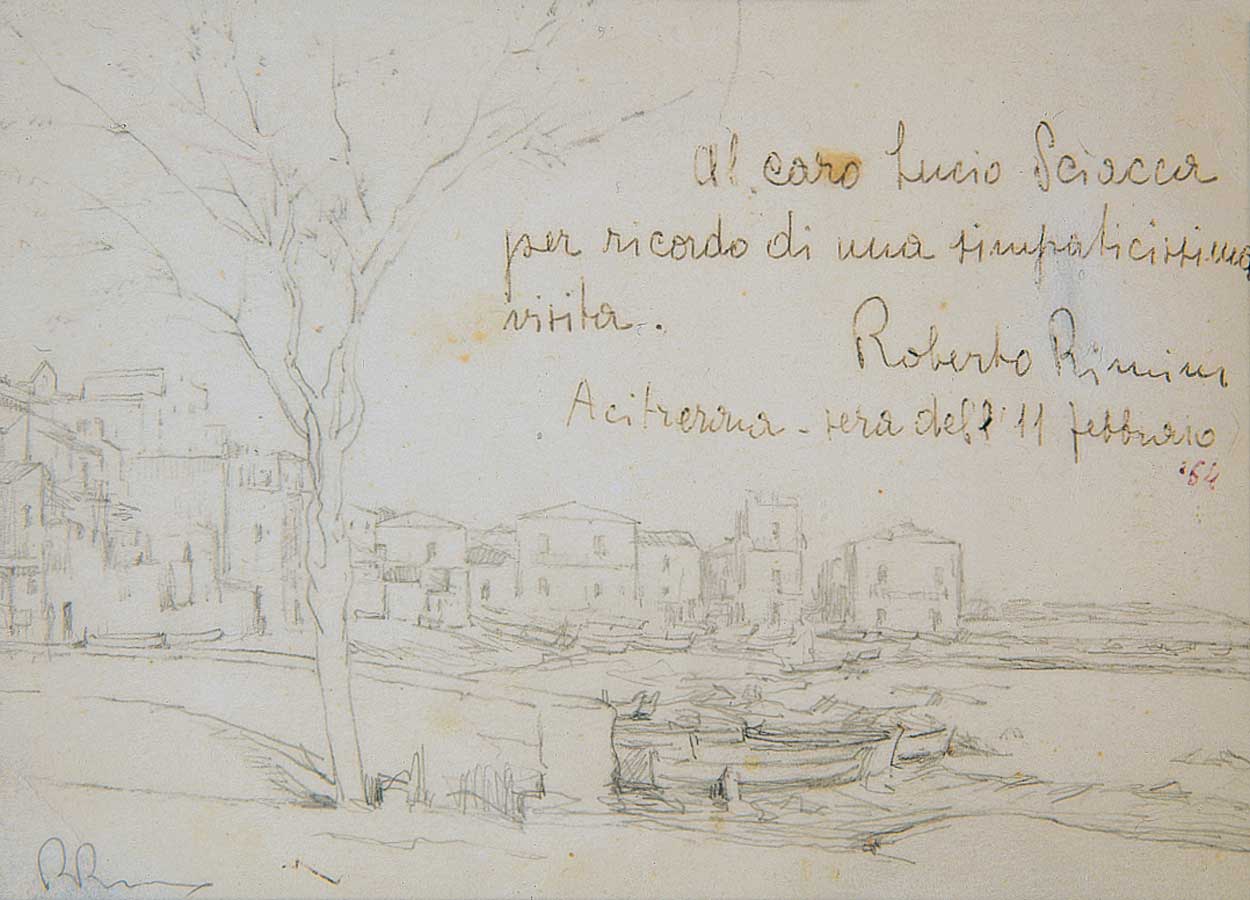 Al caro Lucio Sciacca
per ricordo di una simpaticissima
visita.
Roberto Rimini
Acitrezza - sera dell'11 febbraio
'64
RR